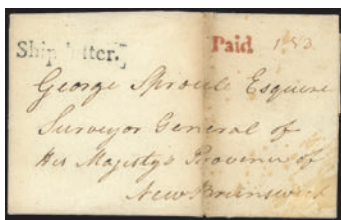 Ship Letter.
Paid 1/53
George Sproule Esquire
Surveyor General of
His Majestys Province of
New Brunswick